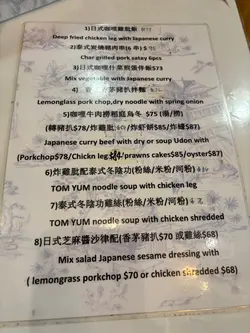 1)日式咖哩雞飯
Deep fried chicken leg with Japanese curry
2)泰式炭燒豬肉串(6串)$
Char grilled pork satay 6pcs
3)日式咖哩什菜飯蛋伴飯$73
Mix vegetable with Japanese curry
4) 香茅豬扒拌麵
Lemonglass pork chop,dry noodle with spring onion
5)咖哩牛肉撈稻庭烏冬 $75 (湯/撈)
(轉豬扒$78/炸雞肶 /炸虾餅$85/炸蠔$87)
Japanese curry beef with dry or soup Udon with
(Porkchop$78/Chickn leg /prawns cakes$85/oyster$87)
6)炸雞肶配泰式冬陰功(粉絲/米粉/河粉)
TOM YUM noodle soup with chicken leg
7)泰式冬陰功雞絲(粉絲/米粉/河粉)
TOM YUM noodle soup with chicken shredded
8)日式芝麻醬沙律配(香茅豬扒$70 或雞絲$68)
Mix salad Japanese sesame dressing with
( lemongrass porkchop $70 or chicken shredded $68)